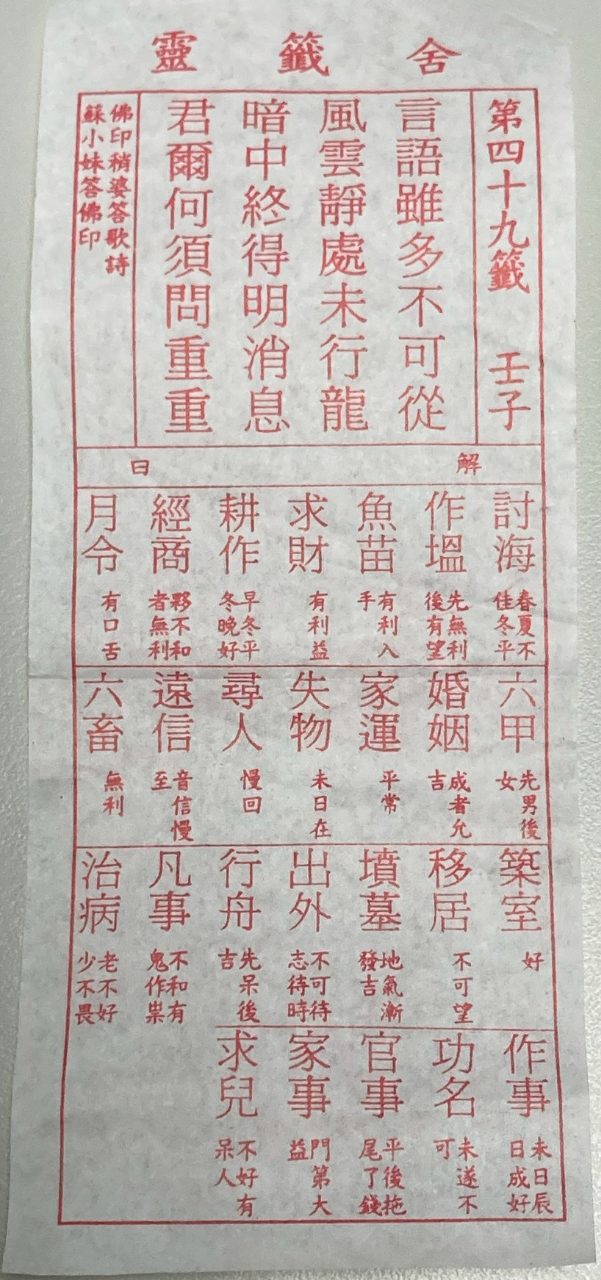 舍籤靈
第四十九籤 壬子
言語雖多不可從
風雲靜處未行龍
暗中終得明消息
君爾何須問重重
佛印稍婆答歌詩
蘇小妹答佛印
解曰
討海 春夏不佳冬平
作塭 先無利後有望
魚苗 有利入手
求財 有利益
耕作 早冬平冬晚好
經商 夥不和者無利
月令 有口舌
六甲 先男後女
婚姻 成者允吉
家運 平常
失物 未日在
尋人 慢回
遠信 音信慢至
六畜 無利
築室 好
移居 不可望
墳墓 地氣漸發吉
出外 不可待志待時
行舟 先呆後吉
凡事 不和有鬼作祟
治病 老不好少不畏
作事 未日辰日成好
功名 未遂不可
官事 平後拖尾了錢
家事 門第大益
求兒 不好有呆人